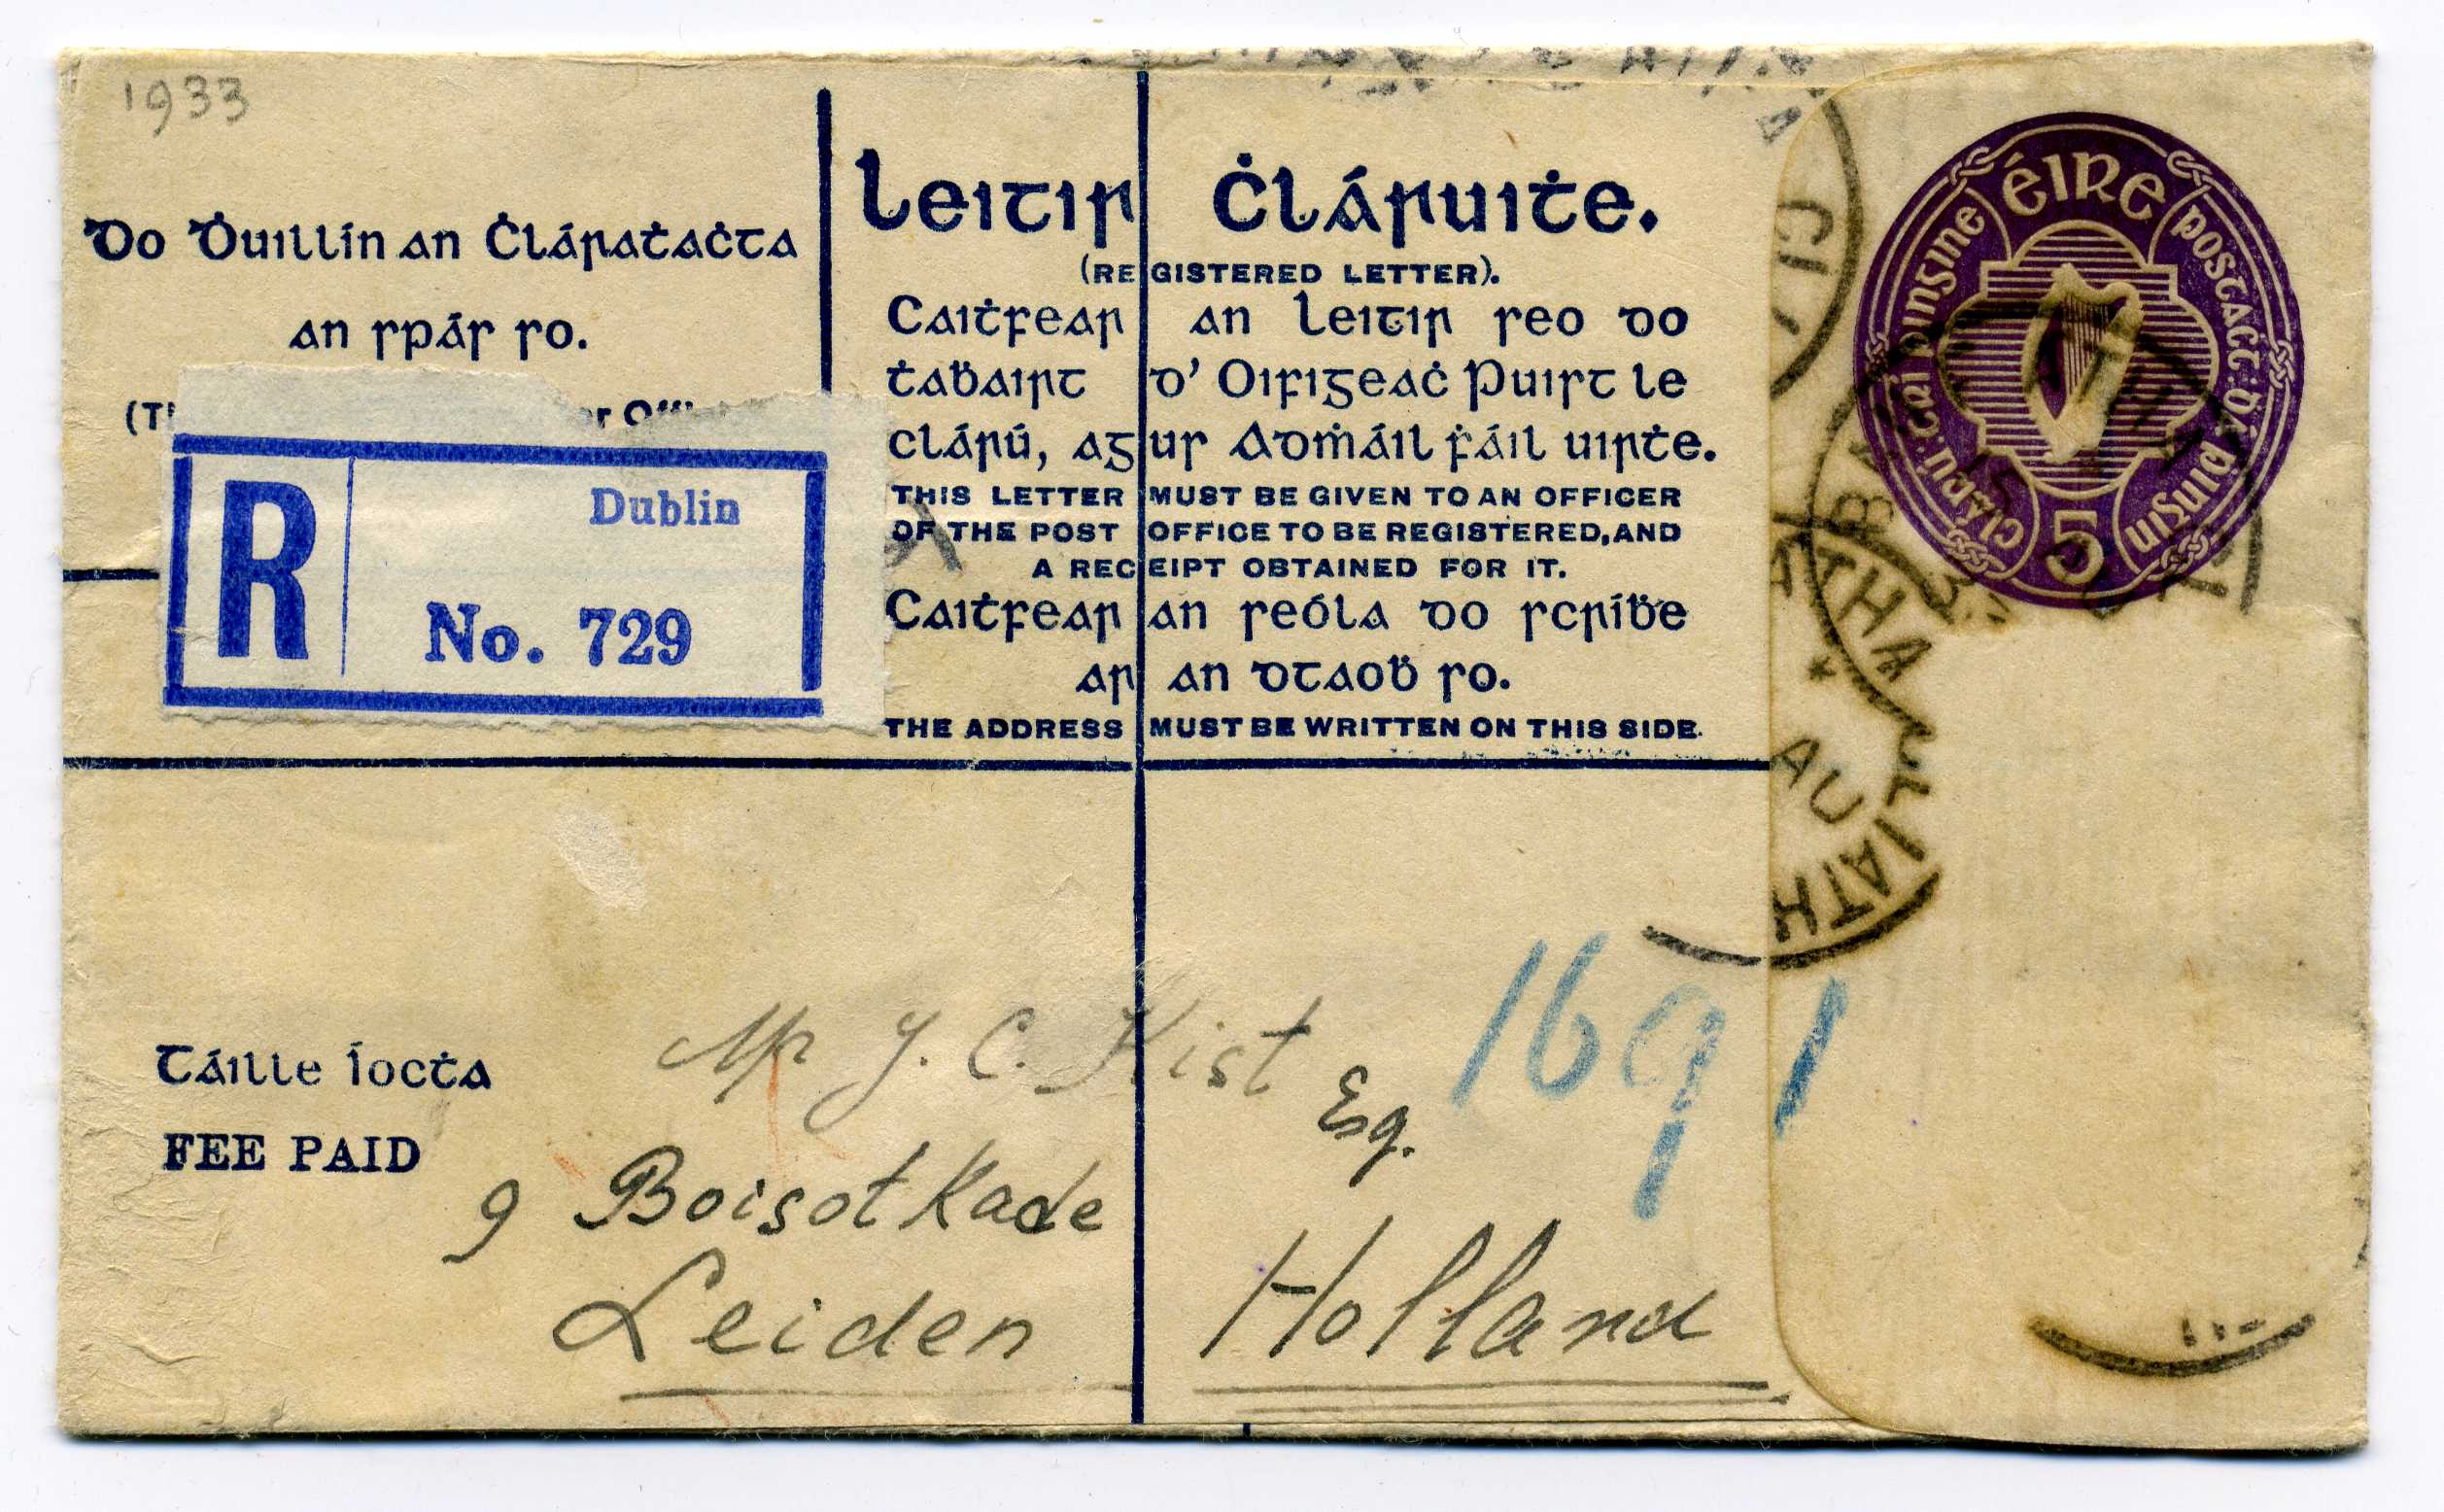 1933
Do Ḋuillín an Ċláraṫaċta
an spás so.
Dublin
R
No. 729
Leitir Ċláruiṫe.
(REGISTERED LETTER).
Caiṫfear an leitir seo do
ṫaḃairt d' Oifigeaċ Puist le
clárú, agus Admáil ḟáil uirṫe.
THIS LETTER MUST BE GIVEN TO AN OFFICER
OF THE POST OFFICE TO BE REGISTERED, AND
A RECEIPT OBTAINED FOR IT.
Caiṫfear an seóla do scríḃe
ar an dtaoḃ so.
THE ADDRESS MUST BE WRITTEN ON THIS SIDE.
éire
postaċt. dá pinginn
clárú. trí pingine
5
ATHA
AU
LIATH
Táille íocṫa
FEE PAID
Mr J. C. Kist
Esq.
1691
9 Boisotkade
Leiden Holland